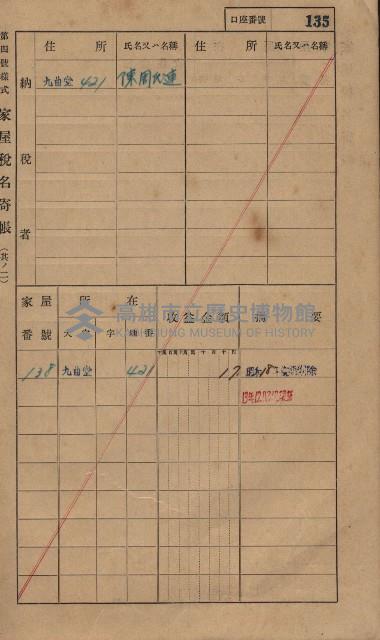 第四號樣式
家屋稅名寄帳
(其ノ二)
口座番號 135
納稅者
住所 氏名又ハ名稱 住所 氏名又ハ名稱
九曲堂 421
家屋番號 所在 收益金額 摘要
大字 字 地番
138 九曲堂 421 17
高雄市立歷史博物館
KAOHSIUNG MUSEUM OF HISTORY